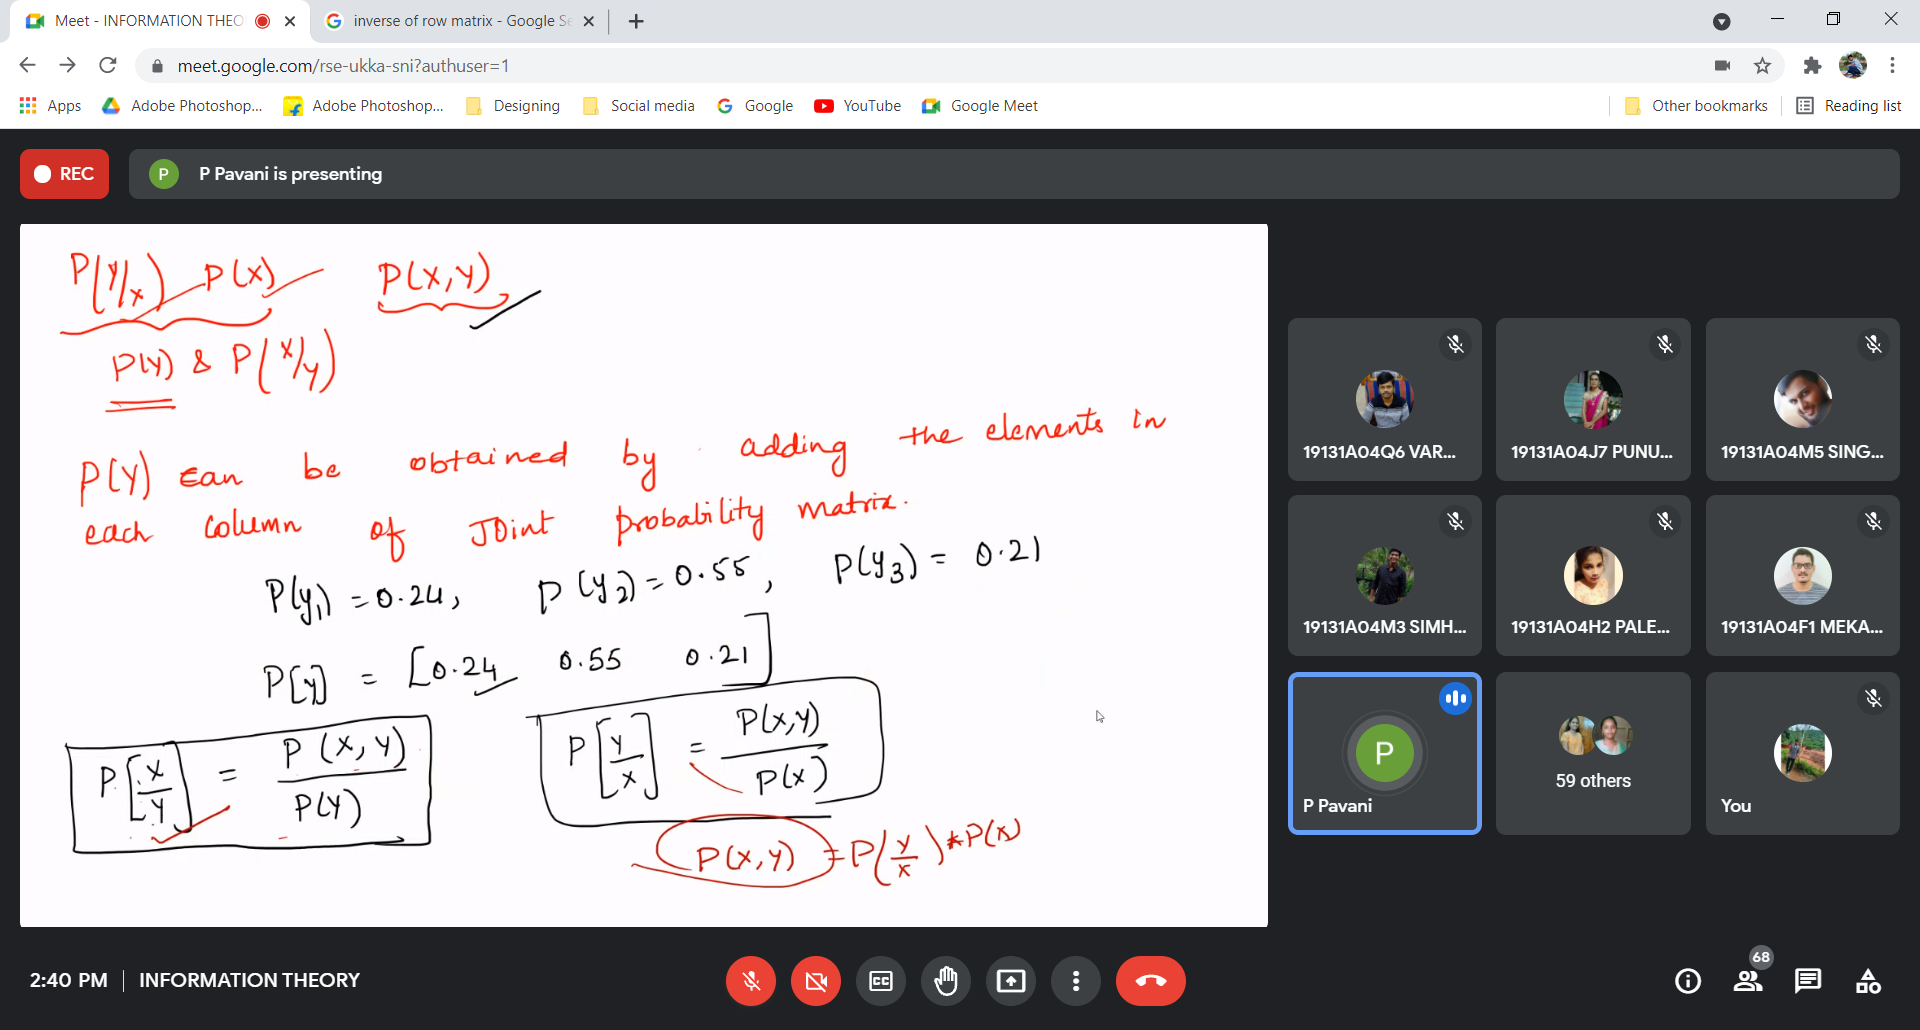 Meet - INFORMATION THEO
inverse of row matrix - Google Se
meet.google.com/rse-ukka-sni?authuser=1
Apps Adobe Photoshop... Adobe Photoshop... Designing Social media Google YouTube Google Meet Other bookmarks Reading list
REC
P P Pavani is presenting
P(Y/X) P(X) P(X,Y)
P(Y) & P(X/Y)
P(Y) can be obtained by adding the elements in
each column of Joint probability matrix.
P(y1) = 0.24, P(y2) = 0.55, P(y3) = 0.21
P[y] = [0.24 0.55 0.21]
P[X/Y] = P(X,Y)/P(Y) P[Y/X] = P(X,Y)/P(X)
P(X,Y) = P(Y/X) * P(X)
19131A04Q6 VAR...
19131A04J7 PUNU...
19131A04M5 SING...
19131A04M3 SIMH...
19131A04H2 PALE...
19131A04F1 MEKA...
P
P Pavani
59 others
You
2:40 PM INFORMATION THEORY
CC
68